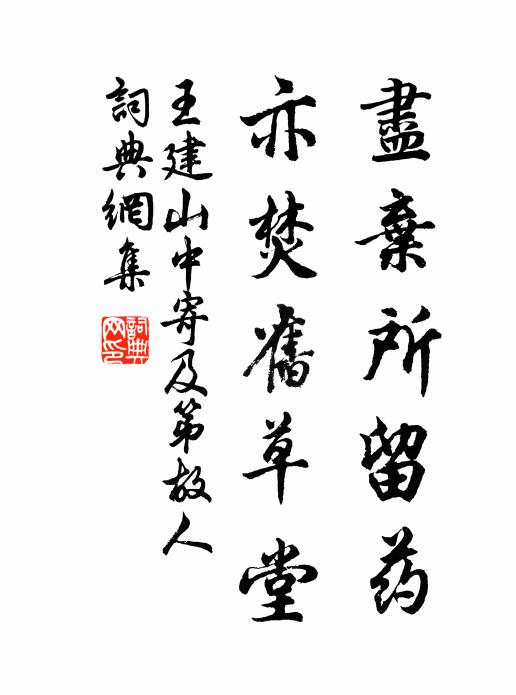 盡棄所留药
亦焚舊草堂
王建山中寄及第故人
詞典網集
詞典網印